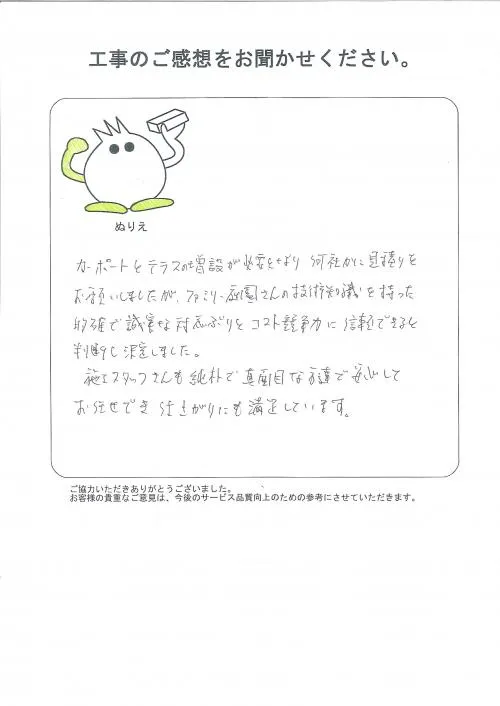 工事のご感想をお聞かせください。
ぬりえ
カーポートとテラスの増設が必要となり 何社かに見積りを
お願いしましたが、ファミリー庭園さんの技術知識を持った
的確で誠実な対応ぶりとコスト競争力に信頼できると
判断し決定しました。
施工スタッフさんも純朴で真面目な方達で安心して
お任せでき 仕上がりにも満足しています。
ご協力いただきありがとうございました。
お客様の貴重なご意見は、今後のサービス品質向上のための参考にさせていただきます。